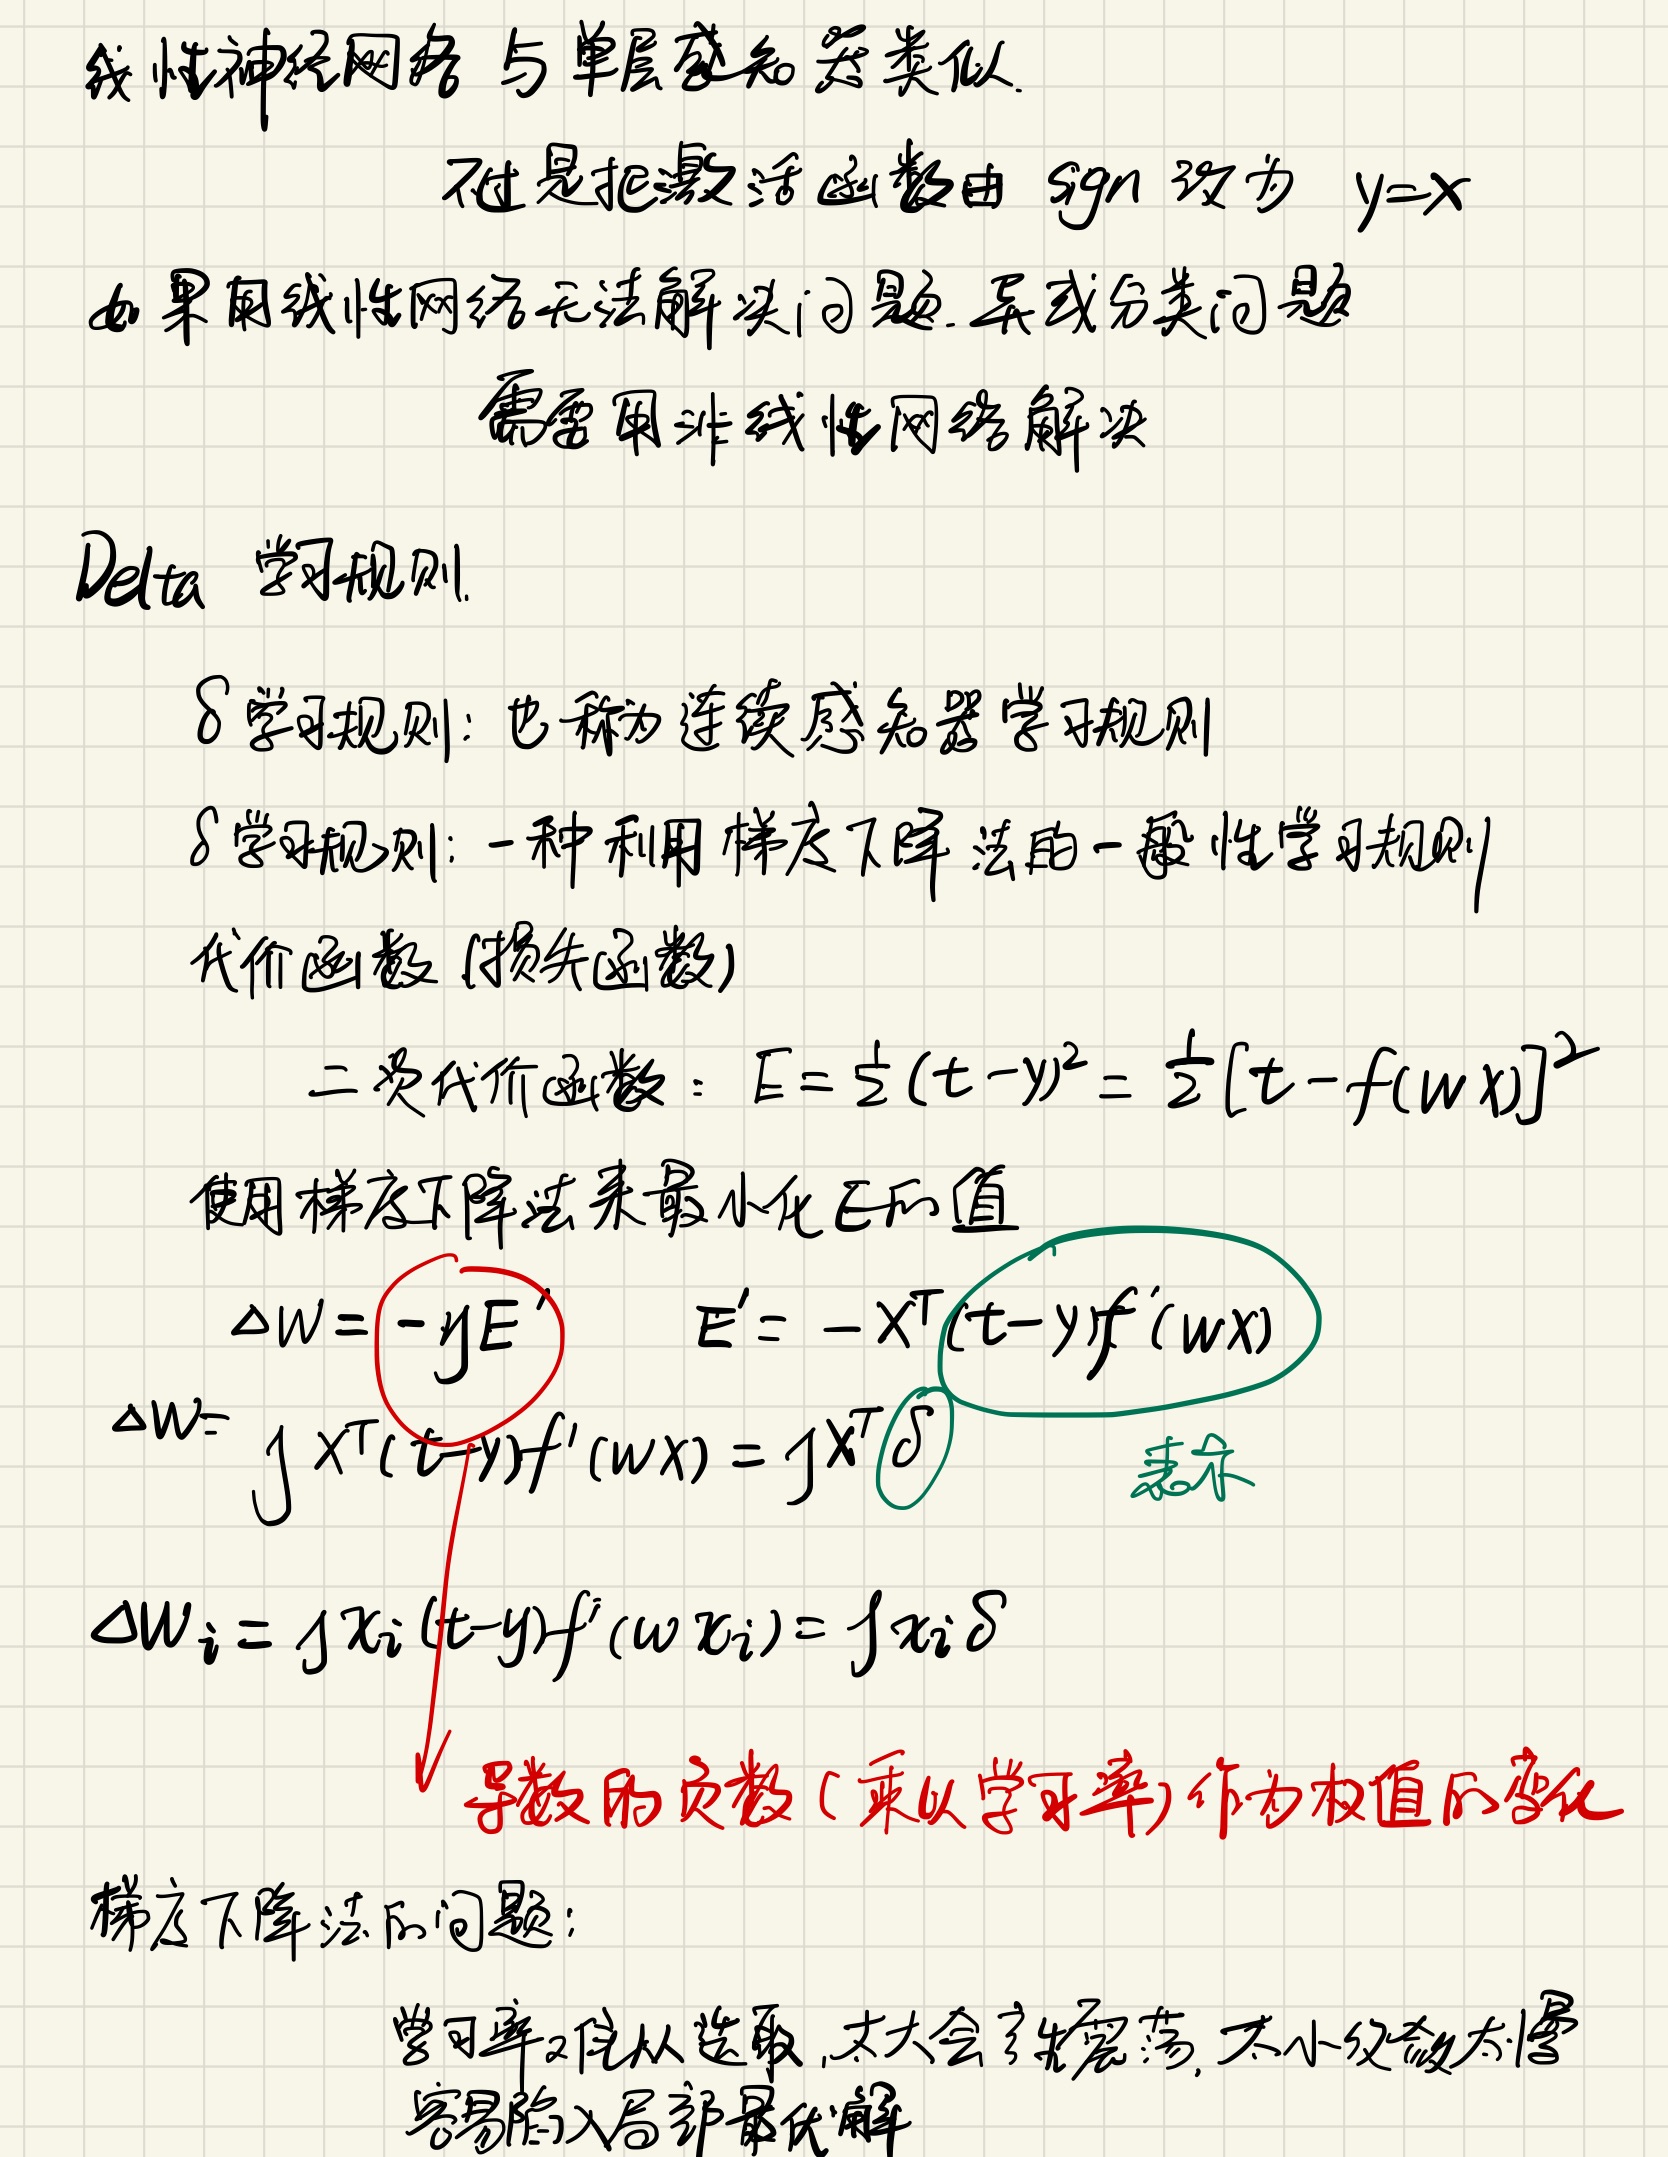 线性神经网络 与单层感知器类似.
不过是把激活函数由 sign 改为 y=x
如果用线性网络无法解决问题.异或分类问题
需要用非线性网络解决
Delta 学习规则.
δ学习规则: 也称为连续感知器学习规则
δ学习规则: 一种利用梯度下降法的一般性学习规则
代价函数 (损失函数)
二次代价函数: E = 1/2 (t-y)² = 1/2 [t-f(WX)]²
使用梯度下降法来最小化E的值
ΔW = -ηE' E' = -Xᵀ(t-y)f'(WX)
ΔW= ηXᵀ(t-y)f'(WX) = ηXᵀδ 表示
ΔWi = ηxi(t-y)f'(wxi) = ηxiδ
导数的负数(乘以学习率)作为权值的变化
梯度下降法的问题:
学习率难以选取,太大会产生震荡,太小收敛太慢
容易陷入局部最优解